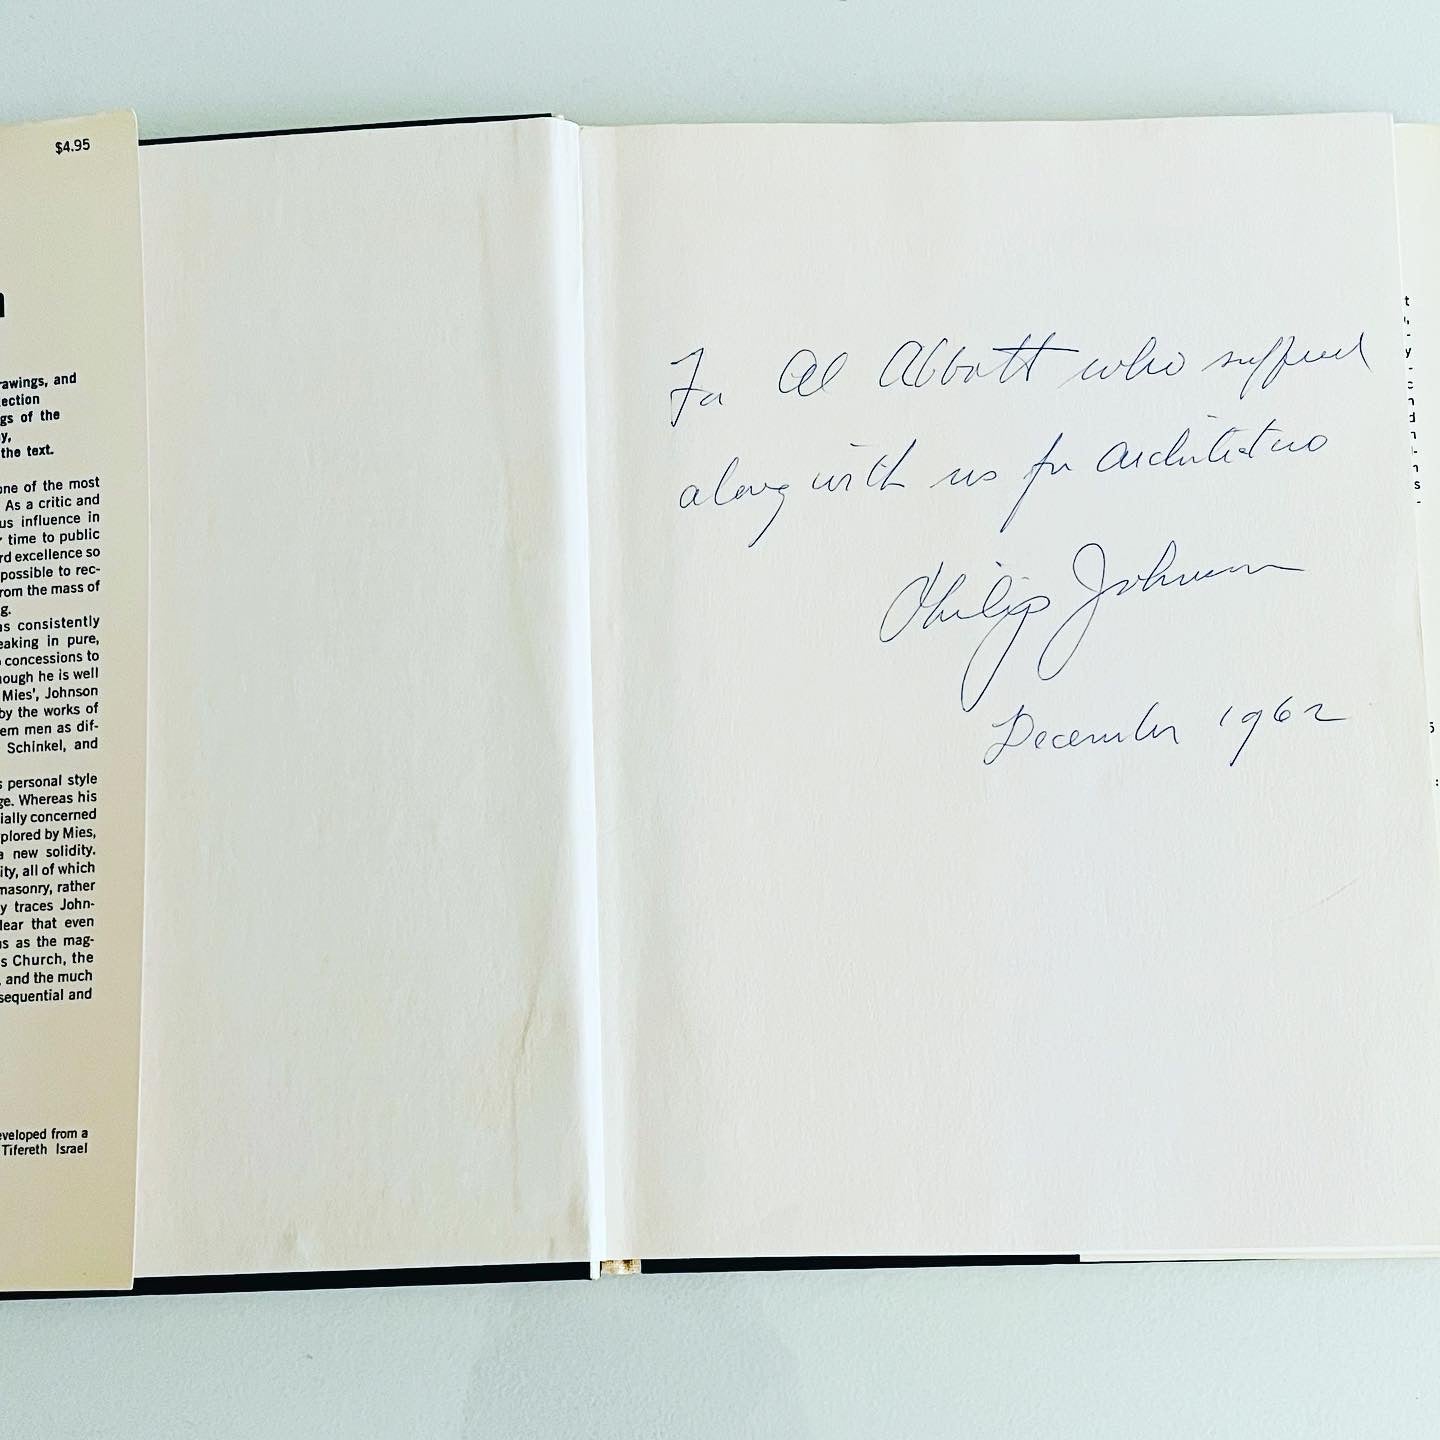 $4.95
rawings, and
ection
gs of the
y,
the text.
one of the most
As a critic and
us influence in
time to public
rd excellence so
possible to rec-
rom the mass of
g.
as consistently
eaking in pure,
concessions to
hough he is well
Mies', Johnson
by the works of
em men as dif-
Schinkel, and
s personal style
ge. Whereas his
ially concerned
plored by Mies,
a new solidity.
ity, all of which
masonry, rather
y traces John-
lear that even
ns as the mag-
s Church, the
, and the much
sequential and
eveloped from a
Tifereth Israel
For Al Abbott who suffered
along with us for architecture
Philip Johnson
December 1962